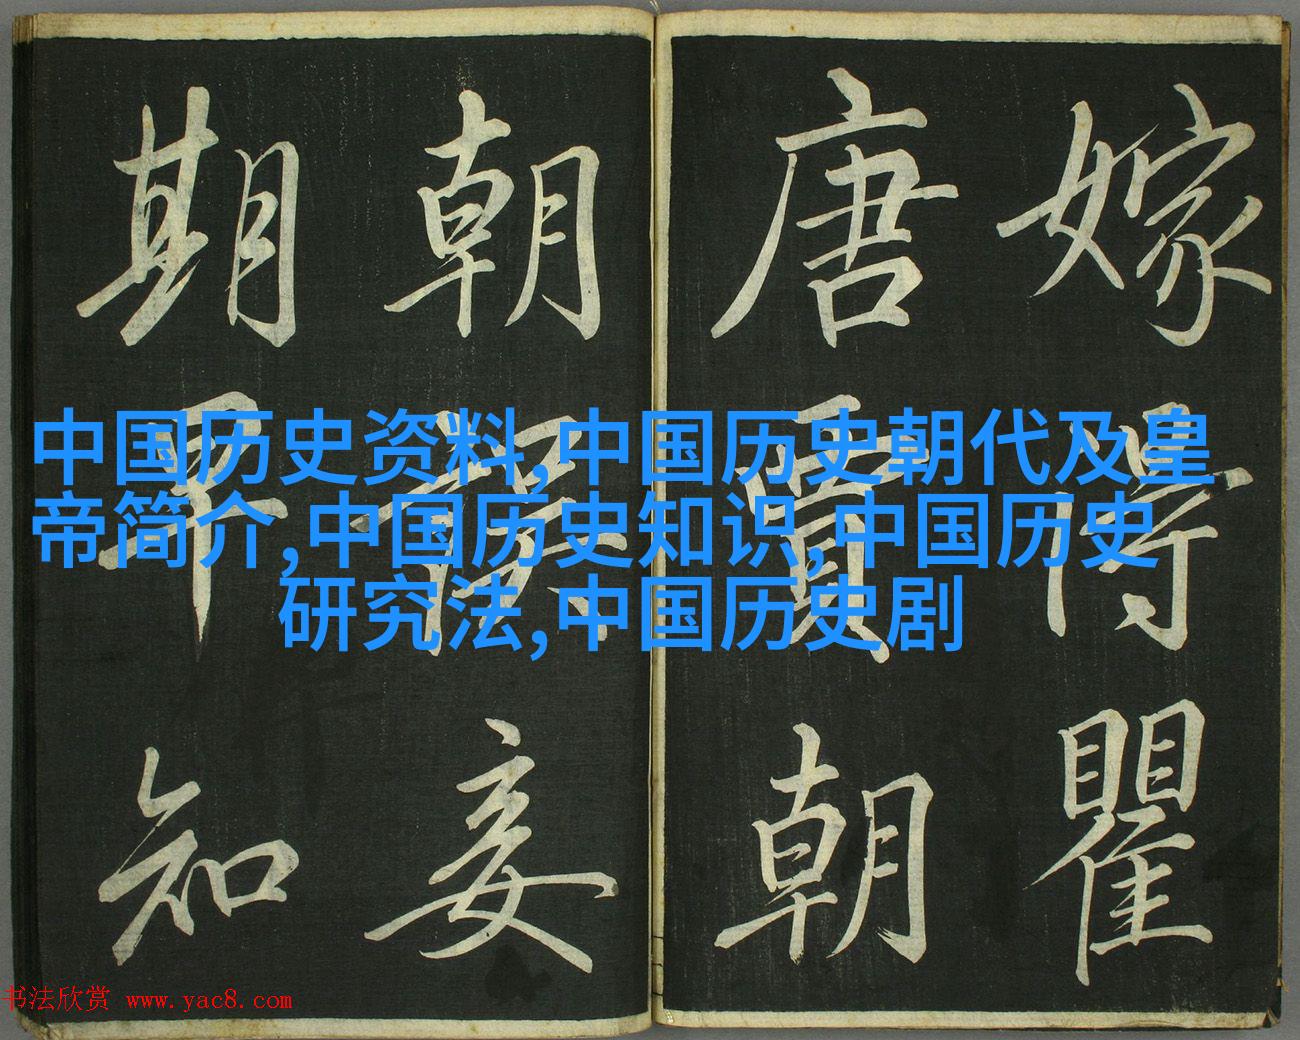 嫁得瞿
唐賈朝
朝誤妾
期早知
中国历史资料,中国历史朝代及皇
帝简介,中国历史知识,中国历史
研究法,中国历史剧
书法欣赏 www.yac8.com